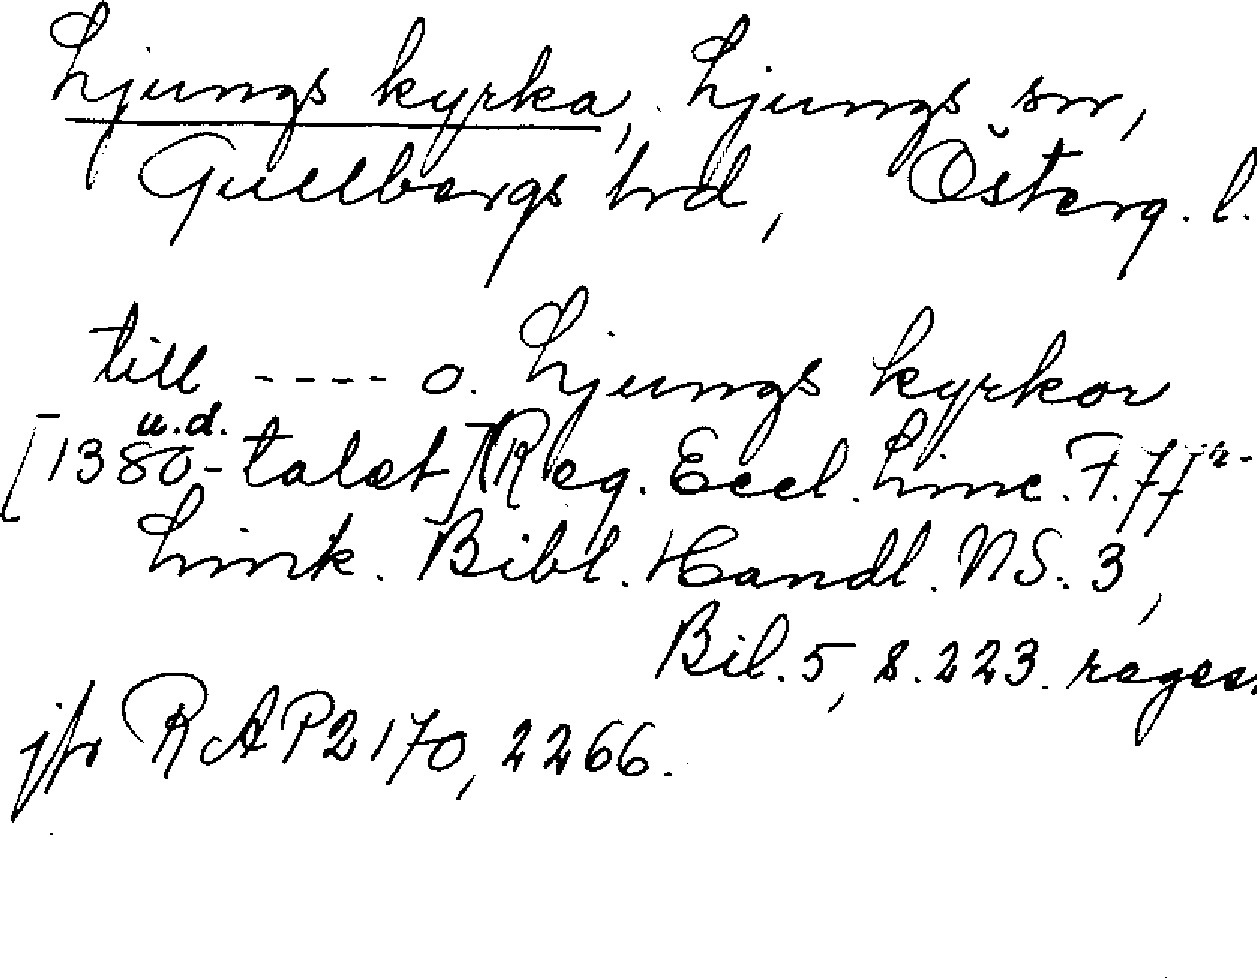 Ljungs kyrka, Ljungs sn,
Gullbergs hrd, Österg. l.
till ---- o. Ljungs kyrkor
u.d.
[1380-talet] Reg. Eccl. Linc. F. 77 r.
Link. Bibl. Handl. NS. 3,
Bil. 5, s. 223. regest
jfr RAP 2170, 2266.